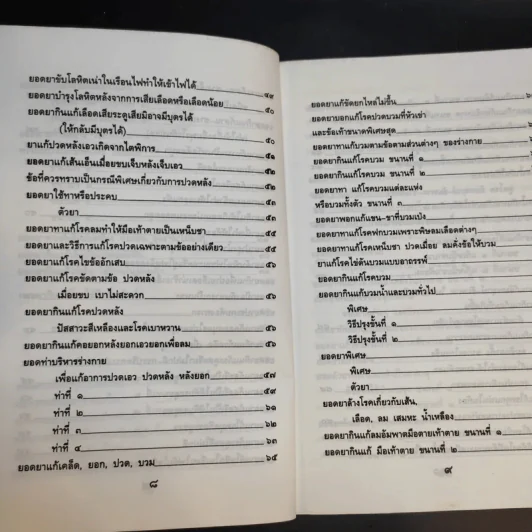 ยอดยาขับโลหิตเน่าในเรือนไฟทำให้เข้าไฟได้ ๔๙
ยอดยาบำรุงโลหิตหลังจากการเสียเลือดหรือเลือดน้อย ๕๐
ยอดยากินแก้เลือดเสียระดูเสียมิอาจมีบุตรได้
(ให้กลับมีบุตรได้) ๕๐
ยาแก้ปวดหลังเอวเกิดจากไตพิการ ๕๑
ยอดยาแก้เส้นเอ็นเมื่อยขบเจ็บหลังเจ็บเอว ๕๒
ข้อที่ควรทราบเป็นกรณีพิเศษเกี่ยวกับการปวดหลัง ๕๒
ยอดยาใช้ทาหรือประคบ ๕๓
ตัวยา ๕๓
ยอดยาทาแก้โรคลมทำให้มือเท้าตายเป็นเหน็บชา ๕๔
ยอดยาและวิธีการแก้โรคปวดเฉพาะตามข้ออย่างเดียว ๕๕
ยอดยาแก้โรคไขข้ออักเสบ ๕๖
ยอดยาแก้โรคขัดตามข้อ ปวดหลัง
เมื่อยขบ เบาไม่สะดวก ๕๖
ยอดยากินแก้โรคปวดหลัง
ปัสสาวะสีเหลืองและโรคเบาหวาน ๕๖
ยอดยากินแก้คอยอกหลังยอกเอวยอกเพื่อลม ๕๖
ยอดท่าบริหารร่างกาย
เพื่อแก้อาการปวดเอว ปวดหลัง หลังยอก ๕๗
ท่าที่ ๑ ๕๙
ท่าที่ ๒ ๖๑
ท่าที่ ๓ ๖๒
ท่าที่ ๔ ๖๓
ยอดยาแก้เคล็ด, ยอก, ปวด, บวม ๖๕
๘
ยอดยาแก้ขัดยกไหล่ไม่ขึ้น
ยอดยาบอกแก้โรคปวดบวมที่หัวเข่า
และข้อเท้าขนาดพิเศษสุด
ยอดยาทาแก้บวมตามข้อตามส่วนต่างๆ ของร่างกาย
ยอดยากินแก้โรคบวม ขนานที่ ๑
ยอดยากินแก้โรคบวม ขนานที่ ๒
ยอดยาทา แก้โรคบวมแต่ละแห่ง
หรือบวมทั้งตัว ขนานที่ ๓
ยอดยาพอกแก้แขน-ขาที่บวมเป่ง
ยอดยาทาแก้โรคฟกบวมเพราะพิษลมเลือดต่างๆ
ยอดยาทาแก้โรคเหน็บชา ปวดเมื่อย ลมคั่งข้อให้บวม
ยาแก้โรคไข่ดันบวมแบบอาถรรพ์
ยอดยากินแก้โรคบวม
ยอดยากินแก้บวมน้ำและบวมทั่วไป
พิเศษ
วิธีปรุงขั้นที่ ๑
วิธีปรุงขั้นที่ ๒
ยอดยาพิเศษ
พิเศษ
ตัวยา
ยอดยาล้างโรคเกี่ยวกับเส้น,
เลือด, ลม เสมหะ น้ำเหลือง
ยอดยากินแก้ลมอัมพาตมือตายเท้าตาย ขนานที่ ๑
ยอดยากินแก้ มือเท้าตาย ขนานที่ ๒
๙